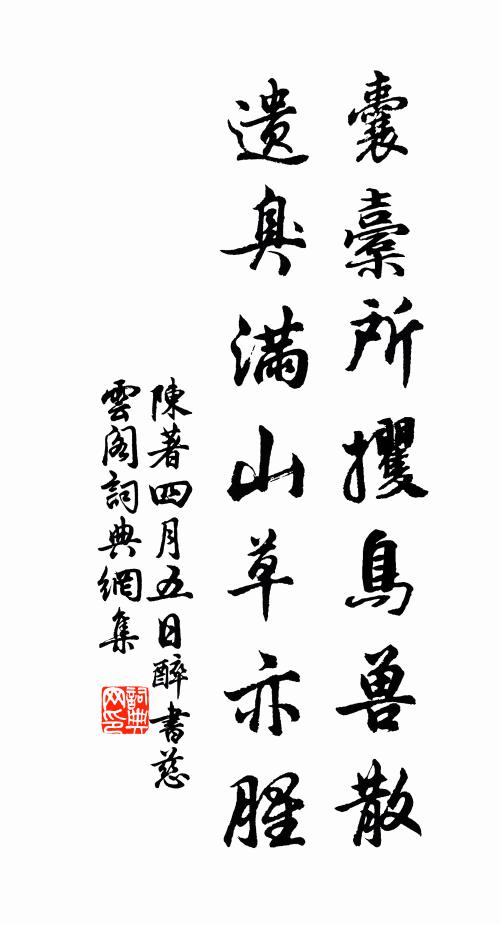 囊橐所攫鳥兽散
遗臭满山草亦腥
陳著四月五日醉書慈
雲阁詞典網集
詞典网印